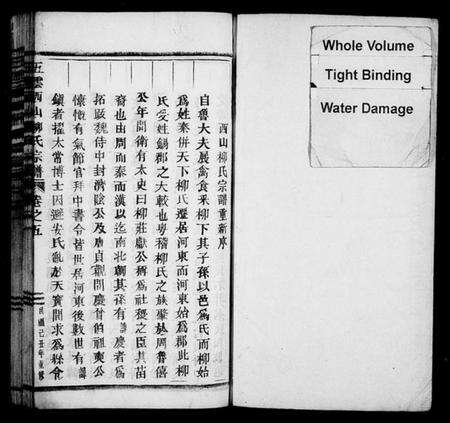 西山柳氏宗譜重新序
自魯大夫展禽食釆柳下其子孫以邑爲氏而柳始
爲姓秦併天下柳氏遷居河東而河東始爲郡此柳
氏受姓錫郡之大較也粤稽柳氏之族肇於周魯僖
公年間衛有太史曰柳莊獻公稱爲社稷之臣其苗
裔也由周而秦而漢以迄南北朝其孫有 慶者爲
拓跋魏侍中封濟陰公及唐貞觀開慶甘伯祖奭公
懷 有氣節官拜中書令皆世居河東後數世有
鎮者擢太常博士因避安氏亂 天寶間求爲 食
五雲西山柳氏宗譜 卷之五
民國己丑年重修
Whole Volume
Tight Binding
Water Damage